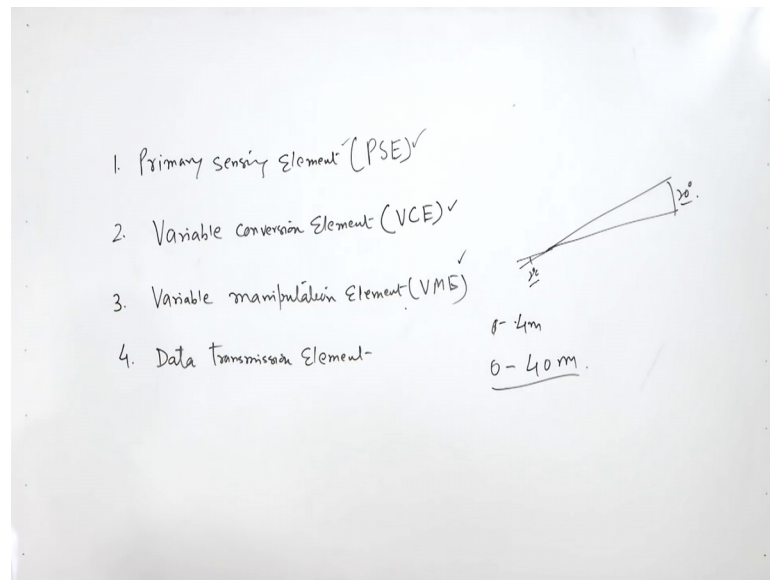 1. Primary sensing Element (PSE)✓
2. Variable conversion Element (VCE)✓
3. Variable manipulation Element (VME)✓
4. Data Transmission Element
20°
2°
0-40m